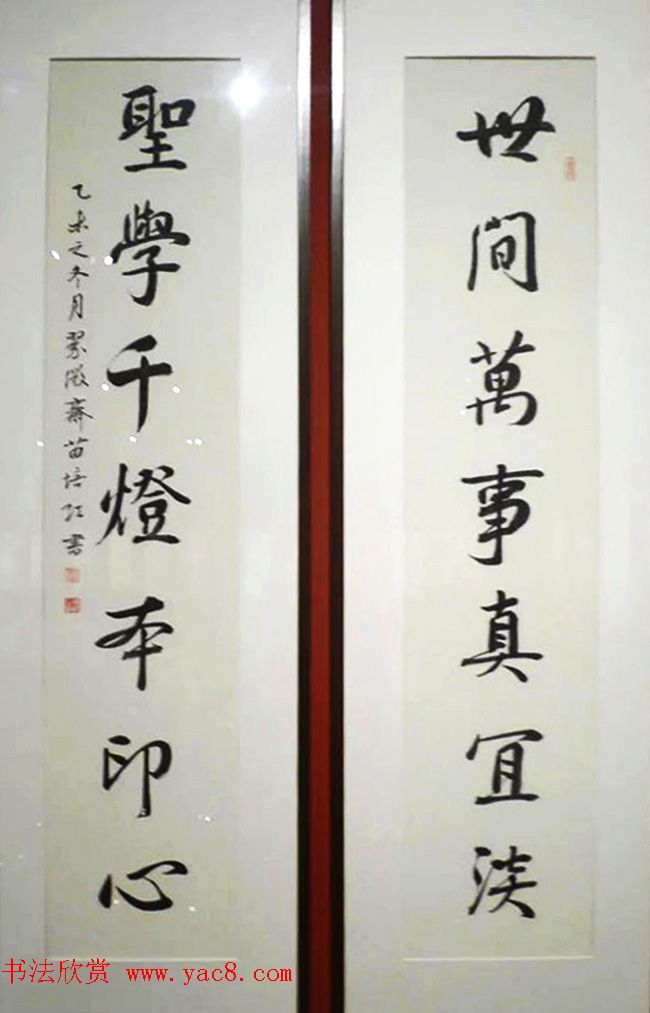 世間萬事真宜淡
聖學千燈本印心
乙未之冬月翠微齋苗培红書
书法欣赏 www.yac8.com